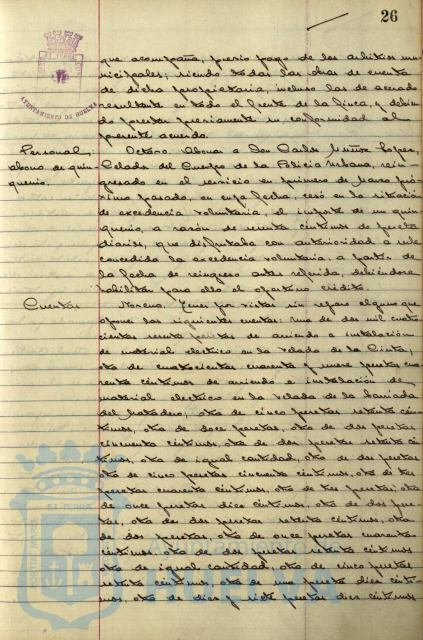 26
AYUNTAMIENTO DE HUELVA
que acompaña, previo pago de los arbitrios mu-
nicipales; siendo todas las obras de cuenta
de dicha propietaria, incluso las de acerado
resultante en todo el frente de la finca, y debien-
do prestar previamente su conformidad al
presente acuerdo.
Personal,
abono de quin-
quenio.
Octavo. Abonar a Don Carlos Muñoz López,
Celador del Cuerpo de la Policía Urbana, rein-
gresado en el servicio en primero de Marzo pró-
ximo pasado, en cuya fecha, cesó en la situación
de excedencia voluntaria, el importe de un quin-
quenio, a razón de céntimos de peseta
diarios, que disfrutaba con anterioridad a serle
concedida la excedencia voluntaria, a partir de
la fecha de reingreso antes referida, debiéndose
habilitar para ello el oportuno crédito.
Cuentas
Noveno. por vistas sin reparo alguno que
oponer las siguientes cuentas: Una de dos mil cuatro-
cientas pesetas de arriendo e instalación
de material electrico en la Velada de la Cinta;
otra de cuatrocientas cuarenta y nueve pesetas cua-
renta céntimos de arriendo e instalación de
material electrico en la Velada de la barriada
del Matadero; otra de cinco pesetas setenta cén-
timos, otra de doce pesetas, otra de dos pesetas
cincuenta céntimos, otra de dos pesetas setenta cén-
timos, otra de igual cantidad, otra de dos pesetas
otra de cinco pesetas cincuenta céntimos, otra de tres
pesetas cuarenta céntimos, otra de tres pesetas; otra
de once pesetas diez céntimos, otra de dos pese-
tas, otra de dos pesetas setenta céntimos, otra
de dos pesetas, otra de once pesetas cuarenta
céntimos, otra de dos pesetas setenta céntimos
otra de igual cantidad, otra de cinco pesetas
setenta céntimos, otra de una peseta diez cénti-
mos, otra de diez y siete pesetas diez céntimos